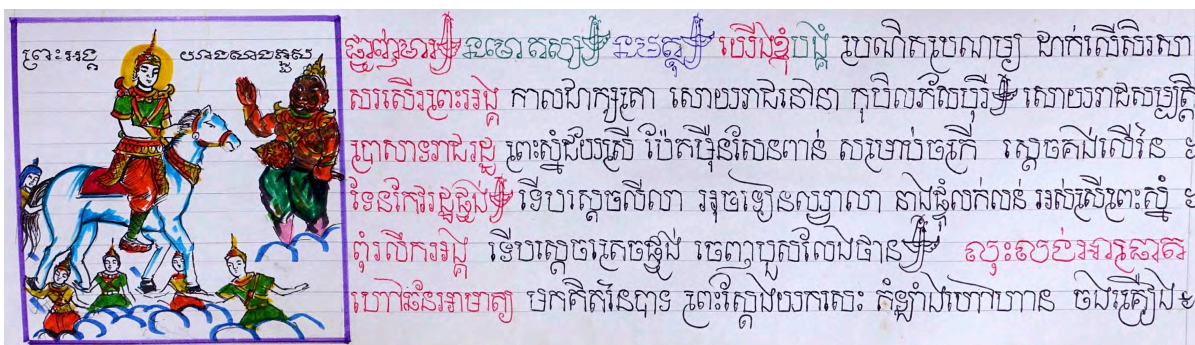 ព្រះអង្គ យាងសាងភ្នួស
ផ្ចាញ់មារ នមោតស្ស នមត្ថុ យើងខ្ញុំបង្គំ ប្រណិតប្រណម្យ ដាក់លើសិរសា
សរសើរព្រះអង្គ កាលជាក្សត្រា សោយរាជនៅនា កុបិលភ័សបុរី សោយរាជសម្បត្តិ
ប្រាសាទរាជរដ្ឋ ព្រះស្នំជ័យស្រី ប៉ែតម៉ឺនសែនពាន់ សម្រាប់ចក្រី ស្តេចគង់លើនៃ
ទែនកែវរដ្ឋផ្ទង់ ទើបស្តេចលីលា អុចទៀនឈ្វាលា នាងផ្ទំលក់លន់ អស់ស្រីព្រះស្នំ
ពុំរលឹករអង្គ ទើបស្តេចត្រេចផ្ទង់ ចេញបួសលែងឋាន លុះយប់អាធ្រាត
ហៅឆនអាមាត្យ មកគិតនៃបាទ ព្រះស្តែងយកសេះ កំឡាំងហៅហាន ចងគ្រឿង